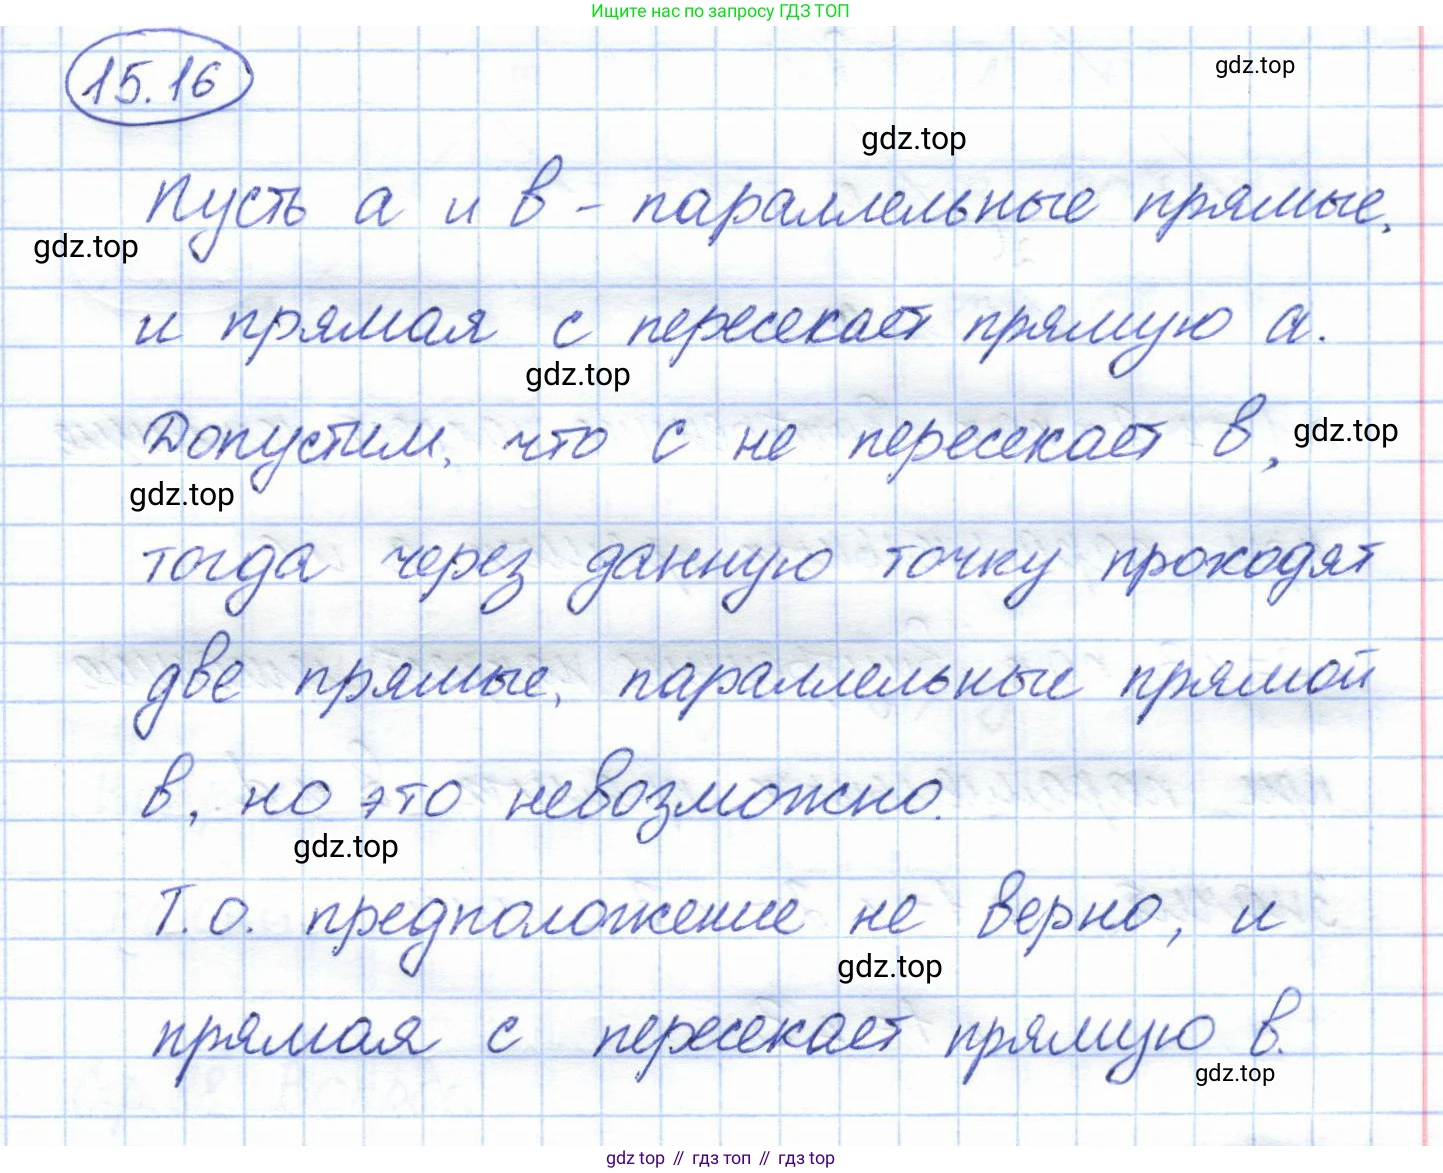 Ищите нас по запросу ГДЗ ТОП
15.16
gdz.top
gdz.top
Пусть а и в - параллельные прямые,
gdz.top
и прямая с пересекает прямую а.
gdz.top
Допустим, что с не пересекает в,
gdz.top
gdz.top
тогда через данную точку проходят
две прямые, параллельные прямой
в, но это невозможно.
gdz.top
Т.о. предположение не верно, и
gdz.top
прямая с пересекает прямую в.
gdz.top
gdz top // гдз топ // гдз top